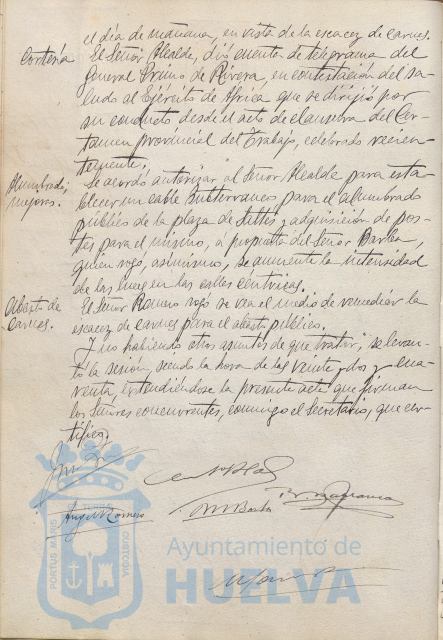 el día de mañana, en vista de la escacez de carnes.
Cortesía
El Señor Alcalde, dió cuenta de telegrama del
General Primo de Rivera, en contestación del sa-
ludo al Ejército de Africa que se dirijió por
su conducto desde el acto de clausura del Cer-
tamen provincial del Trabajo, celebrado recien-
temente.
Alumbrado;
mejoras.
Se acordó autorizar al Señor Alcalde para esta-
blecer un cable subterraneo para el alumbrado
público de la plaza de y adquisición de pos-
tes para el mismo, a propuesta del Señor Barba,
quien rogó, asimismo, se aumente la intensidad
de las luces en las calles céntricas.
Abasto de
carnes.
El Señor Romero rogó se vea el medio de remediar la
escacez de carnes para el abasto público.
Y no habiendo otros asuntos de que tratar, se levan-
tó la sesión, siendo la hora de las veinte y dos y cua-
renta, extendiéndose la presente acta que firman
los Señores concurrentes, conmigo el Secretario, que cer-
tifico.
Angel Romero
M Barba
PORTUS MARIS ET TERRAE CUSTODIA
Ayuntamiento de
HUELVA